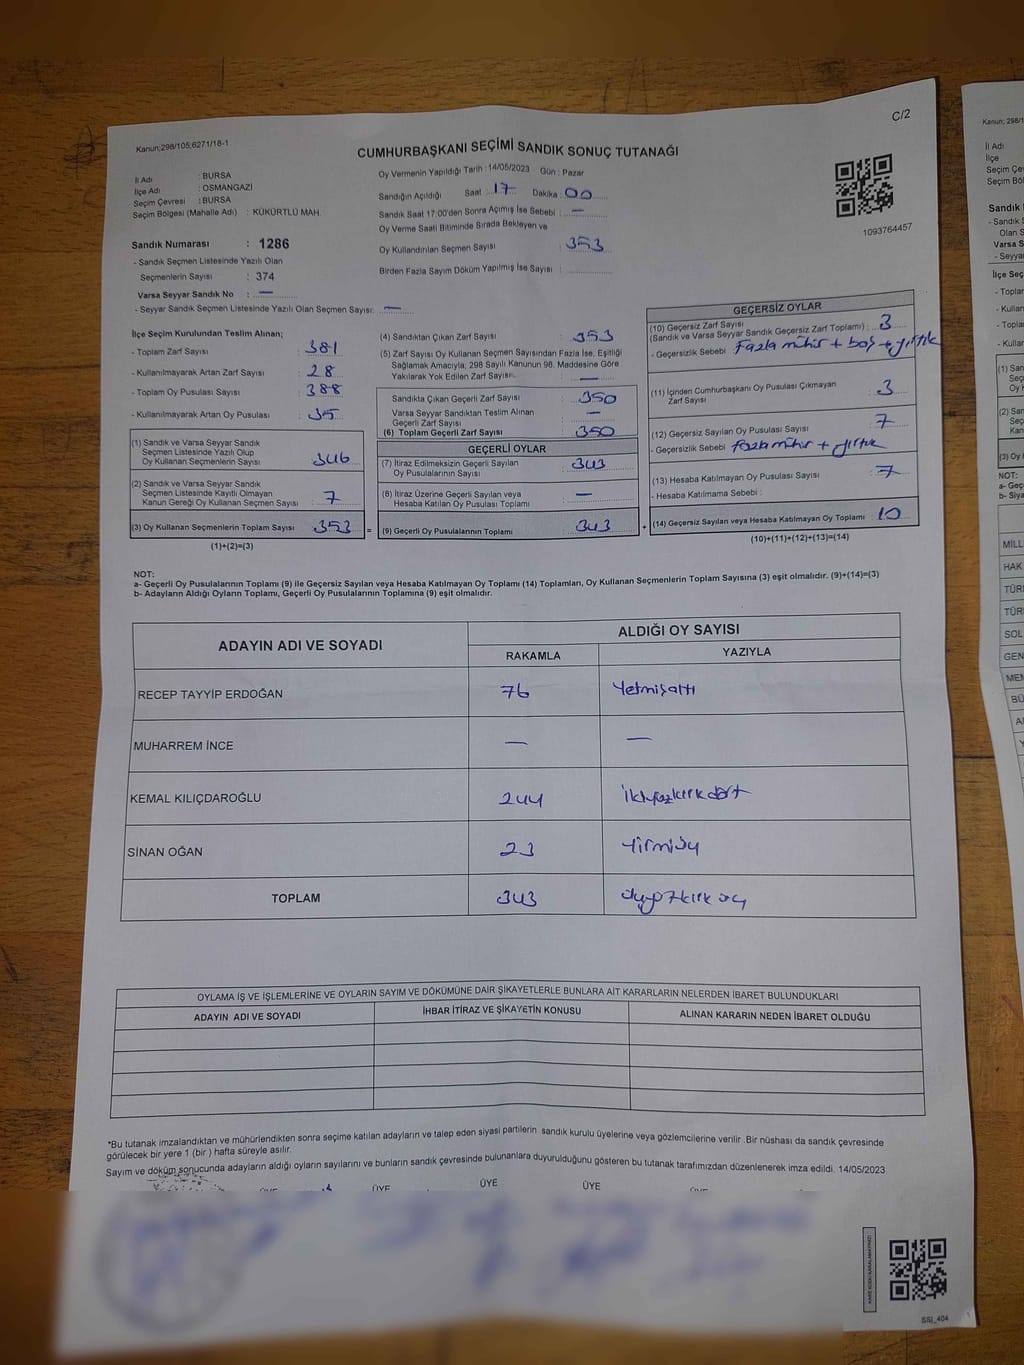 C/2
Kanun;298/105;6271/18-1
CUMHURBAŞKANI SEÇİMİ SANDIK SONUÇ TUTANAĞI
İl Adı : BURSA
İlçe Adı : OSMANGAZİ
Seçim Çevresi : BURSA
Seçim Bölgesi (Mahalle Adı) : KÜKÜRTLÜ MAH.
Oy Vermenin Yapıldığı Tarih : 14/05/2023 Gün : Pazar
Sandığın Açıldığı Saat : 17 Dakika : 00
Sandık Saat 17:00'den Sonra Açımış İse Sebebi : —
Oy Verme Saati Bitiminde Sırada Bekleyen ve
Oy Kullandırılan Seçmen Sayısı : 353
Birden Fazla Sayım Döküm Yapılmış İse Sayısı :
1093764457
Sandık Numarası : 1286
- Sandık Seçmen Listesinde Yazılı Olan
Seçmenlerin Sayısı : 374
Varsa Seyyar Sandık No : —
- Seyyar Sandık Seçmen Listesinde Yazılı Olan Seçmen Sayısı: —
İlçe Seçim Kurulundan Teslim Alınan;
- Toplam Zarf Sayısı : 381
- Kullanılmayarak Artan Zarf Sayısı : 28
- Toplam Oy Pusulası Sayısı : 388
- Kullanılmayarak Artan Oy Pusulası : 35
(1) Sandık ve Varsa Seyyar Sandık
Seçmen Listesinde Yazılı Olup
Oy Kullanan Seçmenlerin Sayısı : 346
(2) Sandık ve Varsa Seyyar Sandık
Seçmen Listesinde Kayıtlı Olmayan
Kanun Gereği Oy Kullanan Seçmen Sayısı : 7
(3) Oy Kullanan Seçmenlerin Toplam Sayısı : 353 =
(1)+(2)=(3)
(4) Sandıktan Çıkan Zarf Sayısı : 353
(5) Zarf Sayısı Oy Kullanan Seçmen Sayısından Fazla İse, Eşitliği
Sağlamak Amacıyla; 298 Sayılı Kanunun 98. Maddesine Göre
Yakılarak Yok Edilen Zarf Sayısı : —
Sandıkta Çıkan Geçerli Zarf Sayısı : 350
Varsa Seyyar Sandıktan Teslim Alınan
Geçerli Zarf Sayısı : —
(6) Toplam Geçerli Zarf Sayısı : 350
GEÇERLİ OYLAR
(7) İtiraz Edilmeksizin Geçerli Sayılan
Oy Pusulalarının Sayısı : 343
(8) İtiraz Üzerine Geçerli Sayılan veya
Hesaba Katılan Oy Pusulası Toplamı : —
(9) Geçerli Oy Pusulalarının Toplamı : 343 +
GEÇERSİZ OYLAR
(10) Geçersiz Zarf Sayısı
(Sandık ve Varsa Seyyar Sandık Geçersiz Zarf Toplamı) : 3
- Geçersizlik Sebebi : Fazla mühür + boş + yırtık
(11) İçinden Cumhurbaşkanı Oy Pusulası Çıkmayan
Zarf Sayısı : 3
(12) Geçersiz Sayılan Oy Pusulası Sayısı : 7
- Geçersizlik Sebebi : fazla mühür + yırtık
(13) Hesaba Katılmayan Oy Pusulası Sayısı : 7
- Hesaba Katılmama Sebebi :
(14) Geçersiz Sayılan veya Hesaba Katılmayan Oy Toplamı : 10
(10)+(11)+(12)+(13)=(14)
NOT:
a- Geçerli Oy Pusulalarının Toplamı (9) ile Geçersiz Sayılan veya Hesaba Katılmayan Oy Toplamı (14) Toplamları, Oy Kullanan Seçmenlerin Toplam Sayısına (3) eşit olmalıdır. (9)+(14)=(3)
b- Adayların Aldığı Oyların Toplamı, Geçerli Oy Pusulalarının Toplamına (9) eşit olmalıdır.
ADAYIN ADI VE SOYADI
ALDIĞI OY SAYISI
RAKAMLA YAZIYLA
RECEP TAYYİP ERDOĞAN 76 Yetmişaltı
MUHARREM İNCE — —
KEMAL KILIÇDAROĞLU 244 İkiyüzkırkdört
SİNAN OĞAN 23 Yirmiüç
TOPLAM 343 üçyüzkırküç
OYLAMA İŞ VE İŞLEMLERİNE VE OYLARIN SAYIM VE DÖKÜMÜNE DAİR ŞİKAYETLERLE BUNLARA AİT KARARLARIN NELERDEN İBARET BULUNDUKLARI
ADAYIN ADI VE SOYADI İHBAR İTİRAZ VE ŞİKAYETİN KONUSU ALINAN KARARIN NEDEN İBARET OLDUĞU
*Bu tutanak imzalandıktan ve mühürlendikten sonra seçime katılan adayların ve talep eden siyasi partilerin sandık kurulu üyelerine veya gözlemcilerine verilir. Bir nüshası da sandık çevresinde
görülecek bir yere 1 (bir ) hafta süreyle asılır.
Sayım ve döküm sonucunda adayların aldığı oyların sayılarını ve bunların sandık çevresinde bulunanlara duyurulduğunu gösteren bu tutanak tarafımızdan düzenlenerek imza edildi. 14/05/2023
ÜYE ÜYE ÜYE ÜYE ÜYE
KARE KODU KARALAMAYINIZ!
SSI_404
Kanun; 298/1
İl Adı
İlçe
Seçim Çev
Seçim Böl
Sandık
- Sandık
Olan S
Varsa S
- Seyya
İlçe Seç
- Toplar
- Kullar
- Topla
- Kullar
(1) San
Seç
Oy K
(2) San
Seç
Kan
(3) Oy
NOT:
a- Geç
b- Siya
MİLL
HAK
TÜRI
TÜR
SOL
GEN
MEM
BÜ